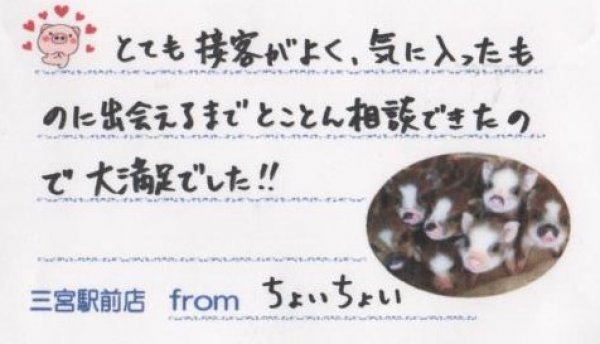 とても接客がよく、気に入ったも
のに出会えるまでとことん相談できたの
で大満足でした!!
三宮駅前店 from ちょいちょい